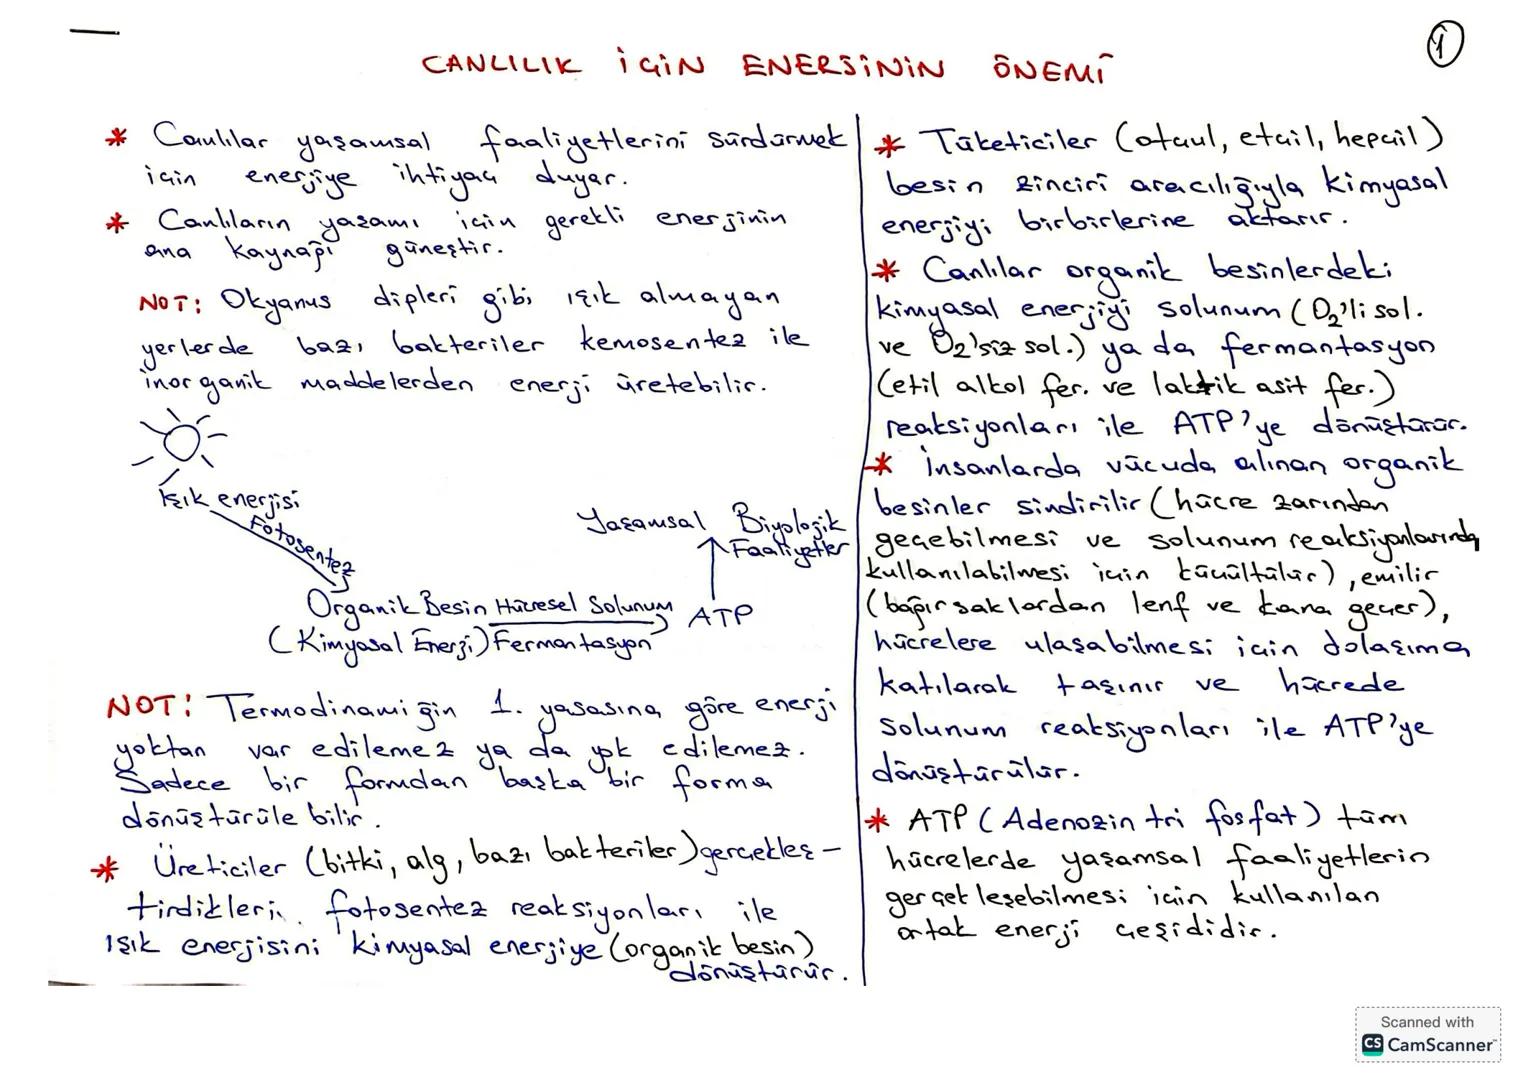 1
CANLILIK İÇİN ENERJİNİN ÖNEMİ
* Canlılar yaşamsal faaliyetlerini sürdürmek
için enerjiye ihtiyaç duyar.
* Canlıların yaşamı için gerekli enerjinin
ana kaynağı güneştir.
NOT: Okyanus dipleri gibi ışık almayan
yerlerde bazı bakteriler kemosentez ile
inorganik maddelerden enerji üretebilir.
Işık enerjisi
Fotosentez
Organik Besin
(Kimyasal Enerji)
Hücresel Solunum
Fermantasyon
ATP
Yaşamsal Biyolojik
Faaliyetler
NOT: Termodinamiğin 1. yasasına göre enerji
yoktan var edilemez ya da yok edilemez.
Sadece bir formdan başka bir forma
dönüştürülebilir.
* Üreticiler (bitki, alg, bazı bakteriler) gerçekleş-
tirdikleri fotosentez reaksiyonları ile
ışık enerjisini kimyasal enerjiye (organik besin)
dönüştürür.
* Tüketiciler (otçul, etçil, hepçil)
besin zinciri aracılığıyla kimyasal
enerjiyi birbirlerine aktarır.
* Canlılar organik besinlerdeki
kimyasal enerjiyi solunum (O₂'li sol.
ve O₂'siz sol.) ya da fermantasyon
(etil alkol fer. ve laktik asit fer.)
reaksiyonları ile ATP'ye dönüştürür.
* İnsanlarda vücuda alınan organik
besinler sindirilir (hücre zarından
geçebilmesi ve solunum reaksiyonlarında
kullanılabilmesi için küçültülür), emilir
(bağırsaklardan lenf ve kana geçer),
hücrelere ulaşabilmesi için dolaşıma
katılarak taşınır ve hücrede
solunum reaksiyonları ile ATP'ye
dönüştürülür.
* ATP (Adenozin tri fosfat) tüm
hücrelerde yaşamsal faaliyetlerin
gerçekleşebilmesi için kullanılan
ortak enerji çeşididir.
Scanned with
CS CamScanner